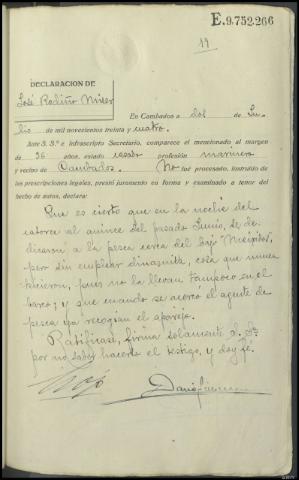 E.9.752.266
19
DECLARACION DE
José Rodiño
En Cambados a dos de Ju-
lio de mil novecientos treinta y cuatro.
Ante S. S.ª e infrascripto Secretario, comparece el mencionado al margen
de 36 años, estado casado profesión marinero
y vecino de Cambados. No fué procesado. Instruído de
las prescripciones legales, prestó juramento en forma y examinado a tenor del
hecho de autos, declara:
Que es cierto que en la noche del
catorce al quince del pasado Junio, se de-
dicaron a la pesca cerca del bajo
pero sin emplear dinamita, cosa que nunca
hicieron, pues no la llevan tampoco en el
barco; y que cuando se acercó el agente de
pesca ya recogían el aparejo.
Ratifícase, firma solamente S. Sª
por no saber hacerlo el testigo, y doy fé.